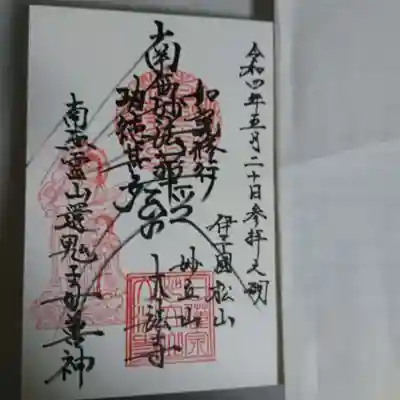 令和四年五月二十日参拝之砌
伊予国松山
妙立山
法寺
如是修行
功徳甚多
南無妙法蓮華経
南無霊山鬼子母尊神